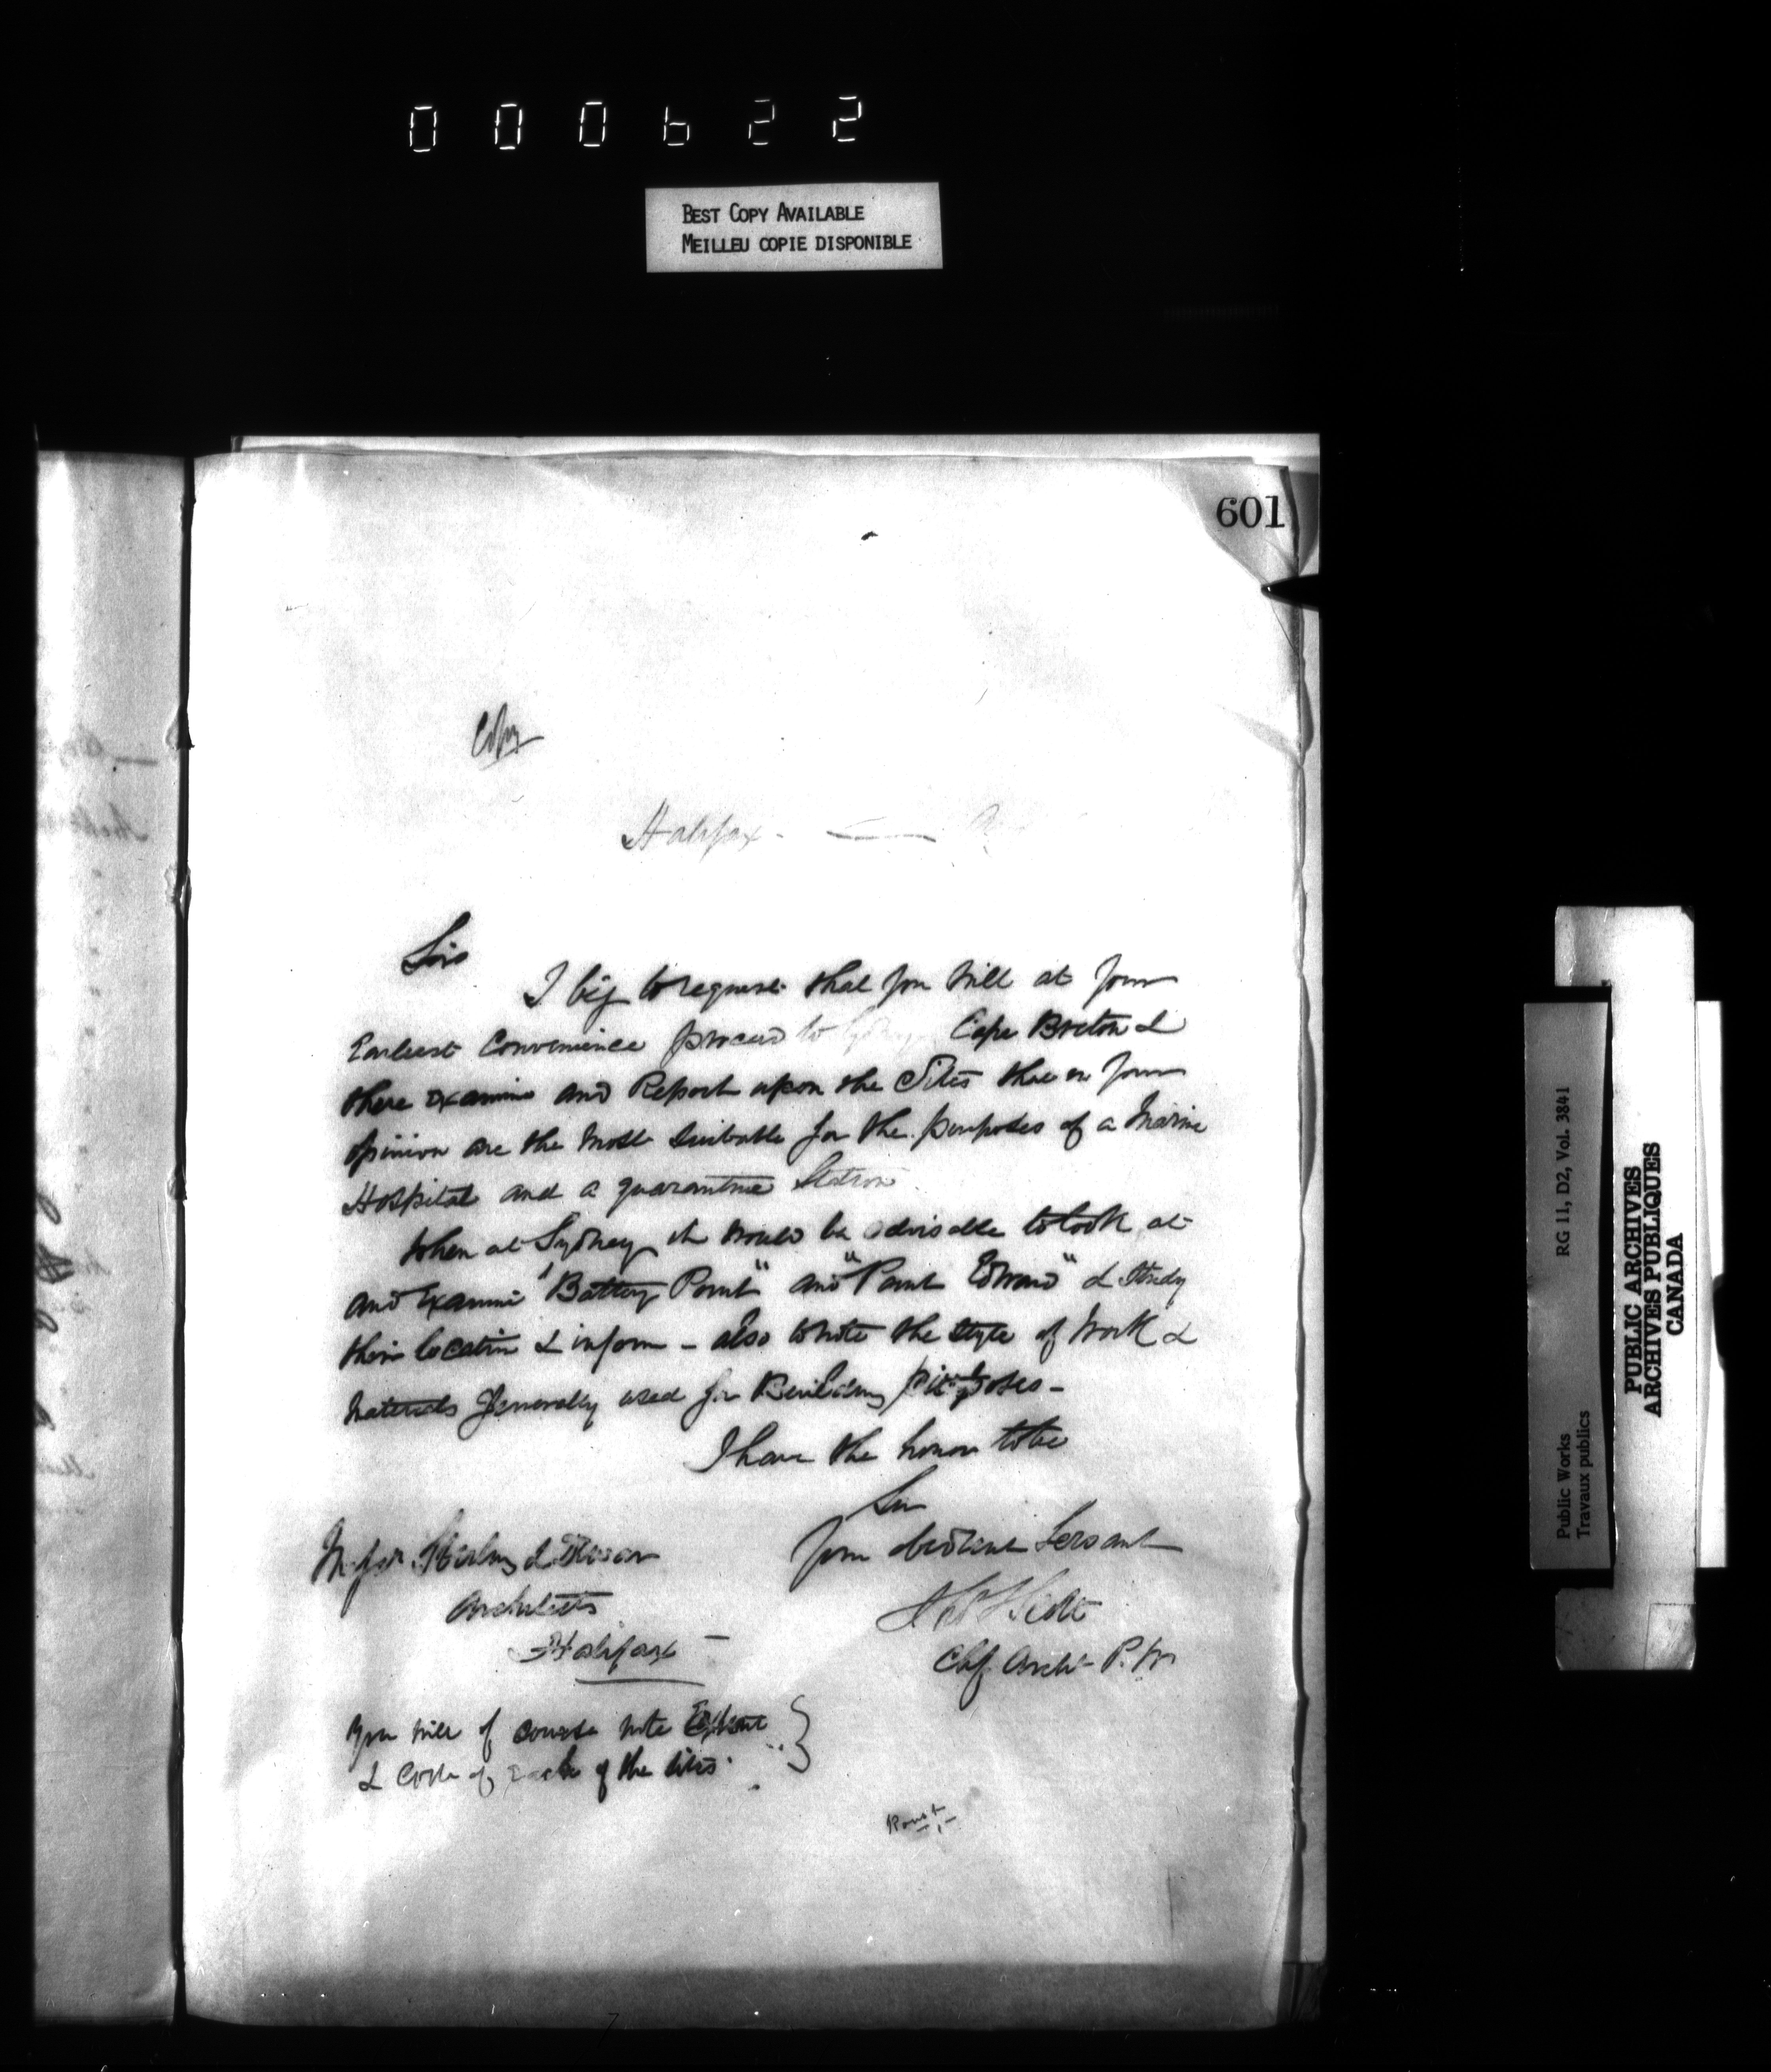 000622
BEST COPY AVAILABLE
MEILLEU COPIE DISPONIBLE
601
Copy
Halifax -
Sirs
I beg to request that you will at your
Earliest Convenience proceed to Sydney Cape Breton &
there examine and Report upon the Sites that in your
opinion are the most suitable for the purposes of a Marine
Hospital and a quarantine Station.
When at Sydney it would be advisable to look at
and Examine "Battery Point" and "Point Edward" & Study
their location & inform - also to note the style of work &
materials generally used for Building purposes -
I have the honor to be
Sir
Your obedient Servant
Messrs Stirling & Dewar
Architects
Halifax -
T S Scott
Chf. Archt - P. W
You will of course note Extent
& Cost of each of the sites.
RG 11, D2, Vol. 3841
Public Works
Travaux publics
PUBLIC ARCHIVES
ARCHIVES PUBLIQUES
CANADA